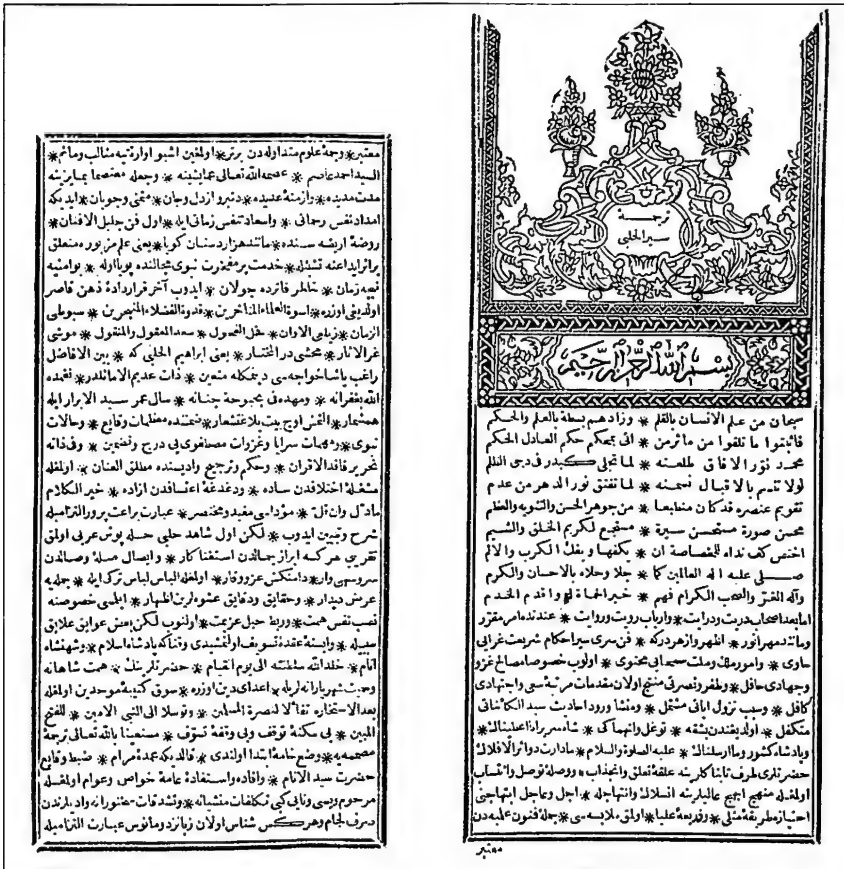 ترجمة
سير الحلبى
بسم الله الرحمن الرحيم
سبحان من علم الانسان بالقلم * وزادهم بسطة بالعلم والحكم
فاثبتوا ما تلقوا من مأثر من * اتى بمحكم حكم العادل الحكم
محمد نور الافاق طلعته * لما تجلى كبدر فى دجى الظلم
لولا تقدم بالاقبال نسمته * لما تفتق نور الدهر من عدم
تقويم عنصره قد كان منطبعا * من جوهر الحسن والتنويه والعظم
محسن صورة مستحسن سيرة * مستجمع لكريم الخلق والشيم
اختص كف نداه للفصاصة ان * يكفها ويفك الكرب والالم
صلى عليه اله العالمين كما * جلا وحلاه بالاحسان والكرم
وآله الغر والصحب الكرام فهم * خير الحماة له واقدم الخدم
اما بعد اصحاب درت ودرايت * وارباب رويت وروايت * عندنده امر مقرر
ومانند مهر انور * اظهر وازهردركه * فن سرى سير احكام شريعت غرايى
حاوى * وامور ملك وملت سمحايى محتوى * اولوب خصوصا مصالح غزو
وجهادى حافل * وظفر ونصرتى منتج اولان مقدمات مرتبۀ سعى واجتهادى
كافل * وسبب نزول اياتى مشتمل * ومنشأ ورود احاديث سيد الكائناتى
متكفل * اولديغندن بشقه * توغل وانهماكى * شاه سرير انا اعطيناك *
وپادشاه كشور وما ارسلناك * عليه الصلوة والسلام * مادارت دوائر الافلاك
حضرتلرى طرف تابناكلرينه علقۀ تعلق وانجذاب * ووصلۀ توصل وانتساب
اولمغله منهج ابهج عاليلرينه انسلاك وانتهاجله * اجل وعاجل ابتهاجنى
احتيازه طريقۀ مثلى * وذريعۀ عليا * اولمق ملابسه سى * جملۀ فنون عليه دن
معتبر
معتبر * وجملۀ علوم متداوله دن برتر * اولمغين اشبو اوارۀ تيه مثالب ومأثم *
السيد احمد عاصم * عصمه الله تعالى عما يشينه * وجعله معتصما بما يزينه
مدت مديده * وازمنۀ عديده * دنبرو از دل وجان * متمنى وجويان * ايديكه
امداد نفس رحمانى * واسعاد تنفس زمانى ايله * اول فن جليل الافنان *
روضۀ اريضه سنده * مانند هزار دستان كويا * يعنى علم مزبوره متعلق
بر اثر ابداعنه تشبثله * خدمت پر مفخرت نبوى شجالنده پويا اوله * بو امنيه
* خاطر فاترده جولان * ايدوب آخر قراردادۀ ذهن قاصر
اولديغى اوزره * اسوة العلماء المتأخرين * قدوة الفضلاء المتبحرين * سيوطى
الزمان * زمخشرى الاوان * فحل الفحول * سعد المعقول والمنقول * موشى
غر الاثار * محشى در المختار * يعنى ابراهيم الحلبى كه * بين الافاضل
راغب پاشا خواجه سى ديمكله متعين * ذات عديم الامثالدر * تغمده
الله بغفرانه * ومهده فى بحبوحة جنانه * سال عمر سيد الابرار ايله
همشمار * التمش اوچ بيت بلاغتشعار * ضمننده معظمات وقايع * وحالات
نبوى * ومهمات سرايا وغزوات مصطفوى يى درج وتضمين * وفى ذاته
نحرير فاقد الاقران * وحكم وترجيح واديسنده مطلق العنان * اولمغله
مشغلۀ اختلافدن ساده * ودغدغۀ اعتسافدن ازاده * خير الكلام
ماقل ودل * مؤداسى مفيد ومختصر * عبارت براعت پرور التزاميله
شرح وتبيين ايدوب * لكن اول شاهد حلبى حله پوش عربى اولمق
تقريبى هر كسه ابراز جمالدن استغنا كار * وايصال صله وصالدن
سروسهى وار * دامنكش عز ووقار * اولمغله الباس لباس ترك ايله * جمله يه
عرض ديدار * وحقايق ودقايق عشوه لرين اظهار * ايلمسى خصوصنه
نصب نفس همت * وربط حبل عزيمت * اولنوب لكن بعض عوايق علايق
سببيله * وابستۀ عقدۀ تسويف اولمشيدى وقتاكه پادشاه اسلام * وشهنشاه
انام * خلد الله سلطنته الى يوم القيام * حضرتلرينك * همت شاهانه
وحميت شهريارانه لريله * اعداى دين اوزره * سوق كتيبۀ موحدين اولمغله
بعد الاستخاره تفألا لنصرة المسلمين * وتوسلا الى النبى الامين * للفتح
المبين * بى سكتۀ توقف وبى وقفۀ تسوف * مستعينا بالله تعالى ترجمۀ
مصممه يه * وضع خامۀ ابتدا اولندى * فالديكه عمدۀ مرام * ضبط وقايع
حضرت سيد الانام * وافاده واستفادۀ عامۀ خواص وعوام اولمغله
مرحوم ويسى ونابى كبى تكلفات منشيانه * وتشدقات واديلرندن
صرف لجام وهر كس شناس اولان زبانزد ومأنوس عبارت التزاميله